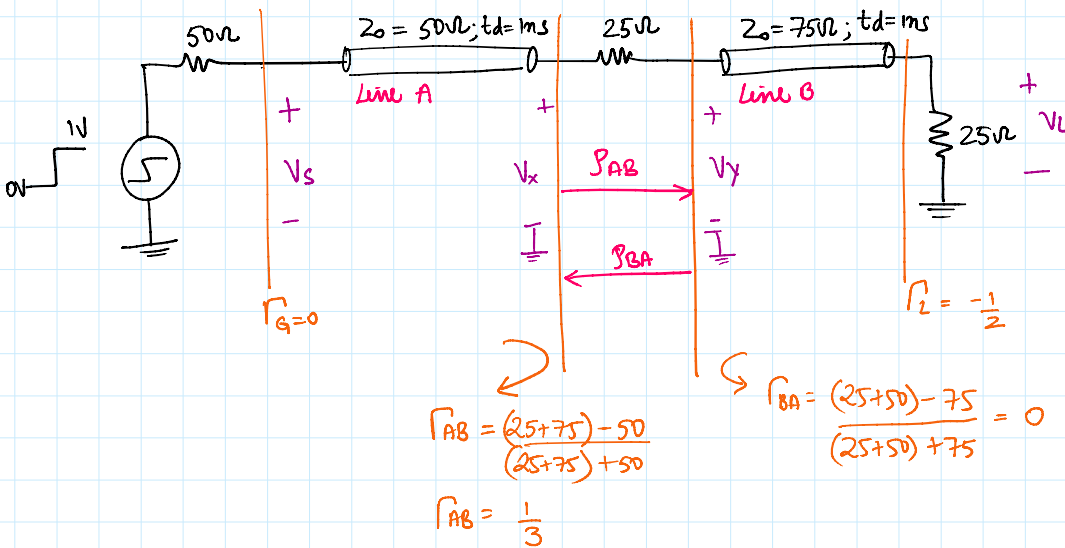 50Ω
Z₀ = 50Ω; td=1ms
25Ω
Z₀ = 75Ω; td=1ms
Line A
Line B
1V
0V
+
Vs
-
+
Vx
ρAB
+
Vy
-
ρBA
25Ω
+
VL
-
ΓG=0
ΓL = -1/2
ΓAB = (25+75)-50 / (25+75)+50
ΓAB = 1/3
ΓBA = (25+50)-75 / (25+50)+75 = 0